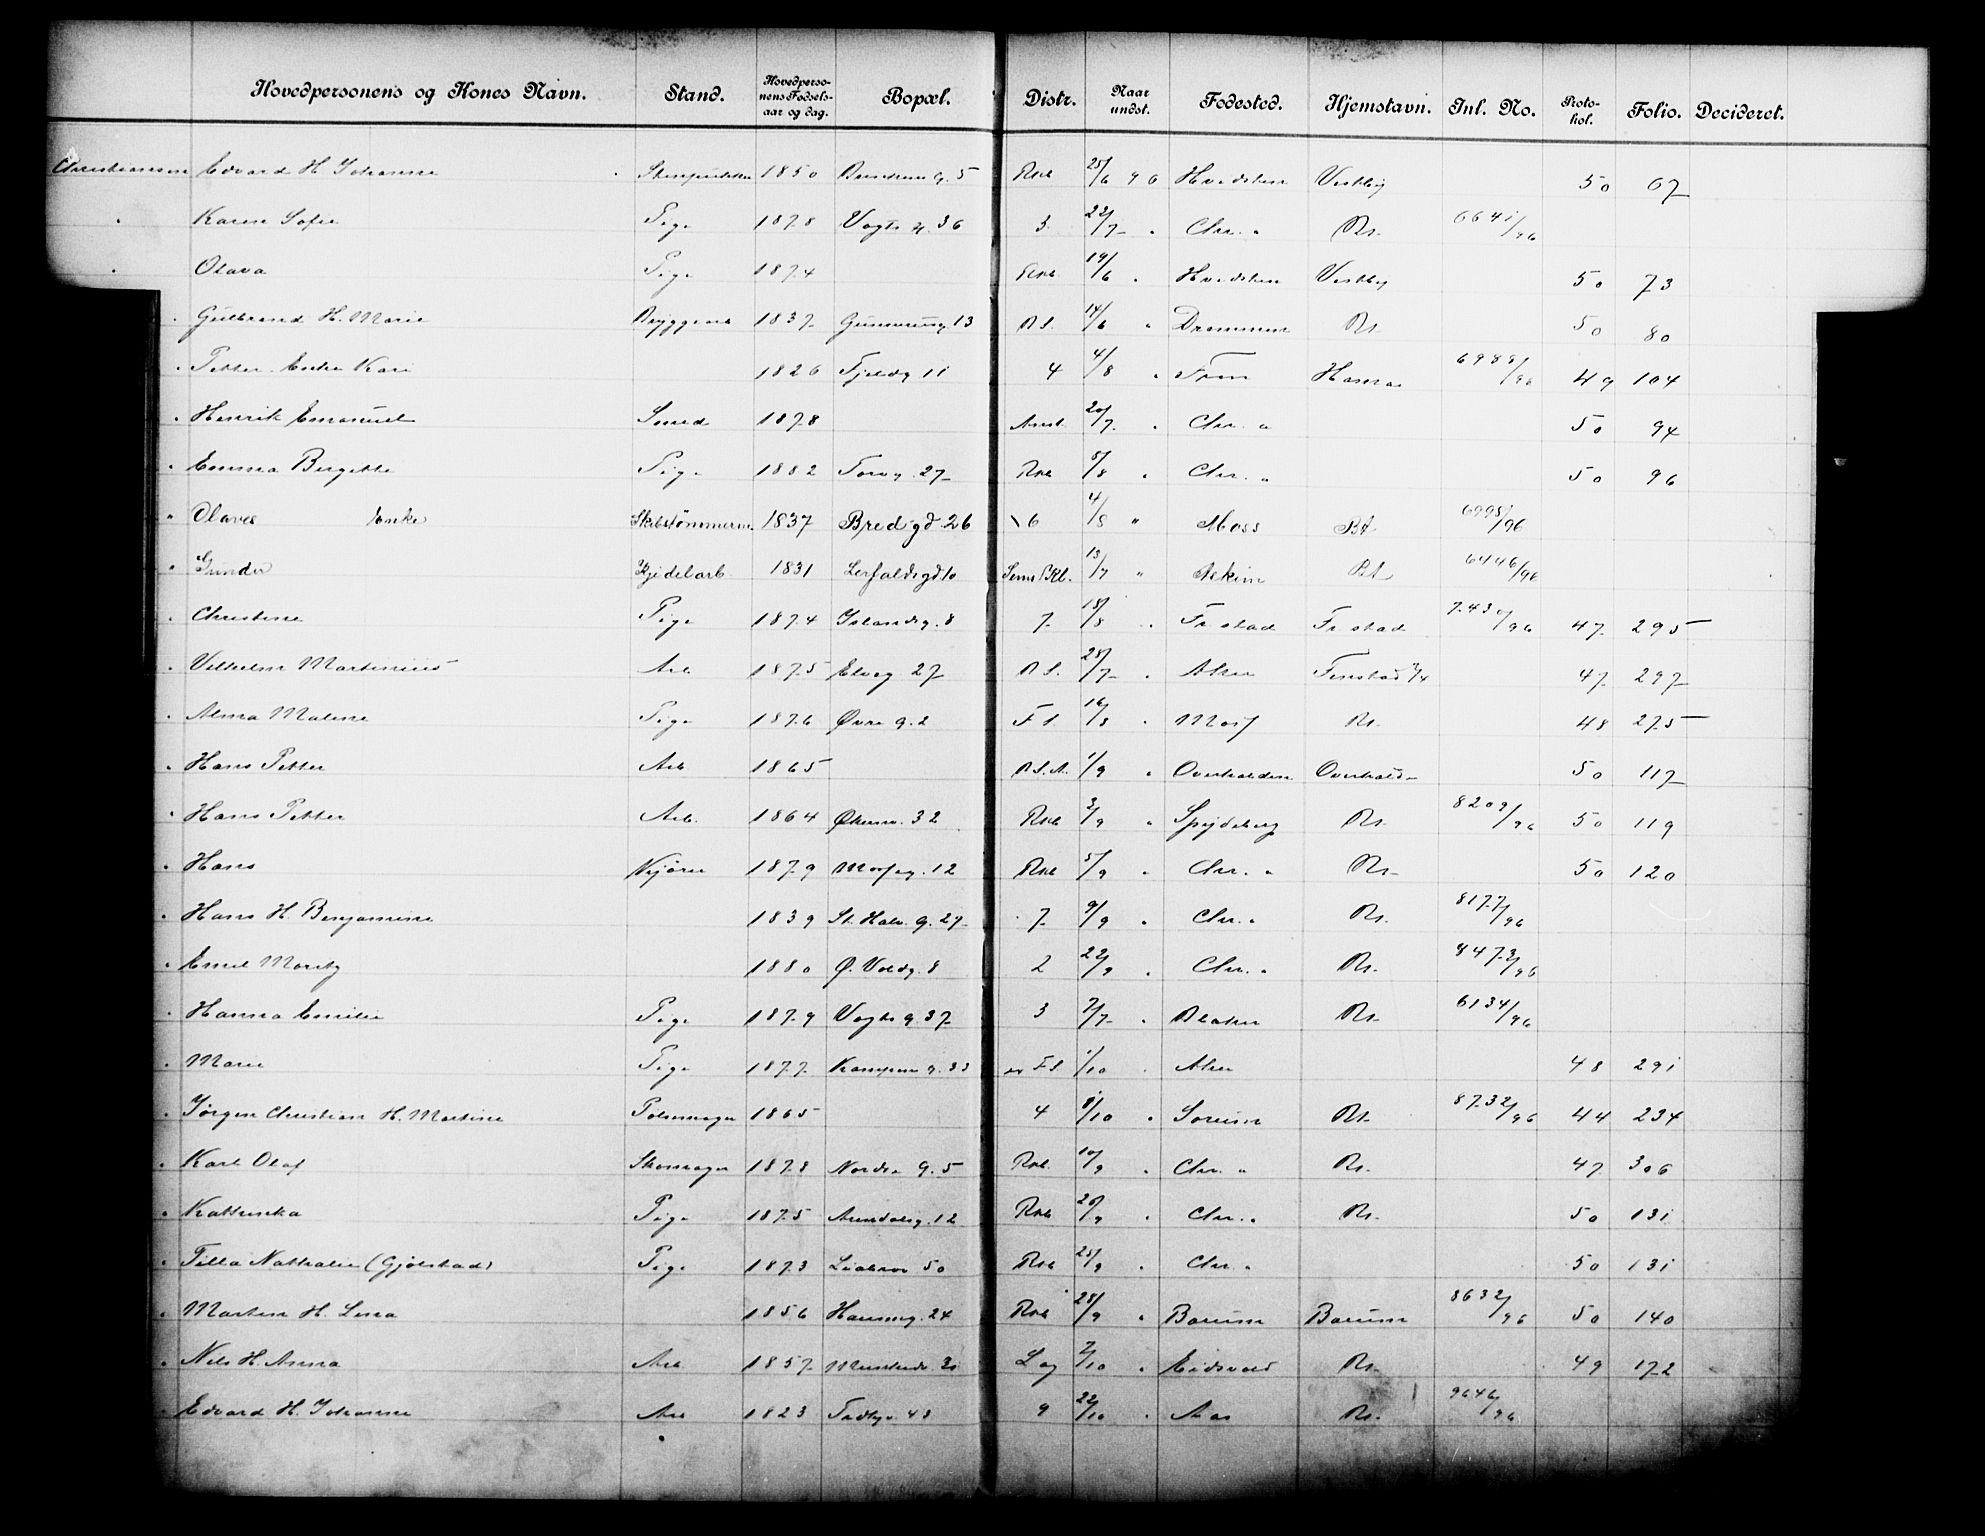 Hovedpersonens og Kones Navn. Stand. Hovedperso-nens Fødsels-aar og dag. Bopæl. Distr. Naar undst. Fødested. Hjemstavn. Inl. No. Proto-kol. Folio. Decideret.
Christiansen Edvard H. Johanne 1850 g. 5 Rkb 25/6 96 Hvidsten Vestby 50 67
" Karen Sofie Pige 1878 Vogts g. 36 3 22/7 " Chr. a Rs. 6641/96
" Olava Pige 1874 Rkb 19/6 " Hvidsten Vestby 50 73
" Gulbrand H. Marie Bryggearb 1837 13 14/6 " Drammen Rs. 50 80
" Petter Enke Kari 1826 Fjeldg 11 4 4/8 " Hamar 49 104
" Henrik Emanuel Smed 1878 20/7 " Chr. a 50 94
" Emma Bergitte Pige 1882 Torvg. 27 Rkb 5/8 " Chr. a 50 96
" Olaves Enke Skibstømmerm. 1837 Bredgd. 26 6 4/8 " Moss 6995/96
" Gunder Kjedelarb. 1831 Lerfaldsgd 10 13/7 " Askim 6446/96
" Christine Pige 1874 Islandsg. 8 7 18/8 " Frstad Frstad 7430/96 47 295
" Vilhelm Martinius Arb 1875 Elveg 27 28/7 " Aker 47 297
" Alma Maline Pige 1876 Øvre g. 2 16/8 " Moss Rs. 48 275
" Hans Petter Arb 1865 1/9 " Overhalden Overhald- 50 117
" Hans Petter Arb. 1864 Økernv. 32 Rkb 3/9 " Spydeberg Rs. 8209/96 50 119
" Hans Visjøver 1879 Mosseg. 12 Rkb 5/9 " Chr. a Rs. 50 120
" Hans H. Benjamine 1839 St. Halv. g. 27 7 9/9 " Chr. a Rs. 8177/96
" Emil Moritz 1880 Ø. Voldg. 8 2 22/9 " Chr. a Rs. 8473/96
" Hanna Emilie Pige 1879 Vogts g. 37 3 7/7 " Blaker Rs. 6134/96
" Marie Pige 1877 Kampens g. 33 1/10 " Aker 48 291
" Jørgen Christian H. Martine Pølsemager 1865 4 8/10 " Sørum Rs. 8732/96 44 234
" Karl Olaf Skomager 1878 Nordre g. 5 Rkb. 10/9 " Chr. a Rs. 47 306
" Kathinka Pige 1875 Arendalsg. 12 Rkb 26/9 " Chr. a Rs. 50 131
" Tilla Nathalie (Gjølstad) Pige 1873 Liabrov 50 Rkb 25/9 " Chr. a 50 131
" Martin H. Lina 1856 Hausmg. 24 Rkb 28/9 " Bærum Bærum 8632/96 50 140
" Nils H. Anna Arb 1857 Lag 2/10 " Eidsvold Rs. 49 172
" Edvard H. Johanne Arb 1823 43 9 22/10 " Aas Rs. 9646/96